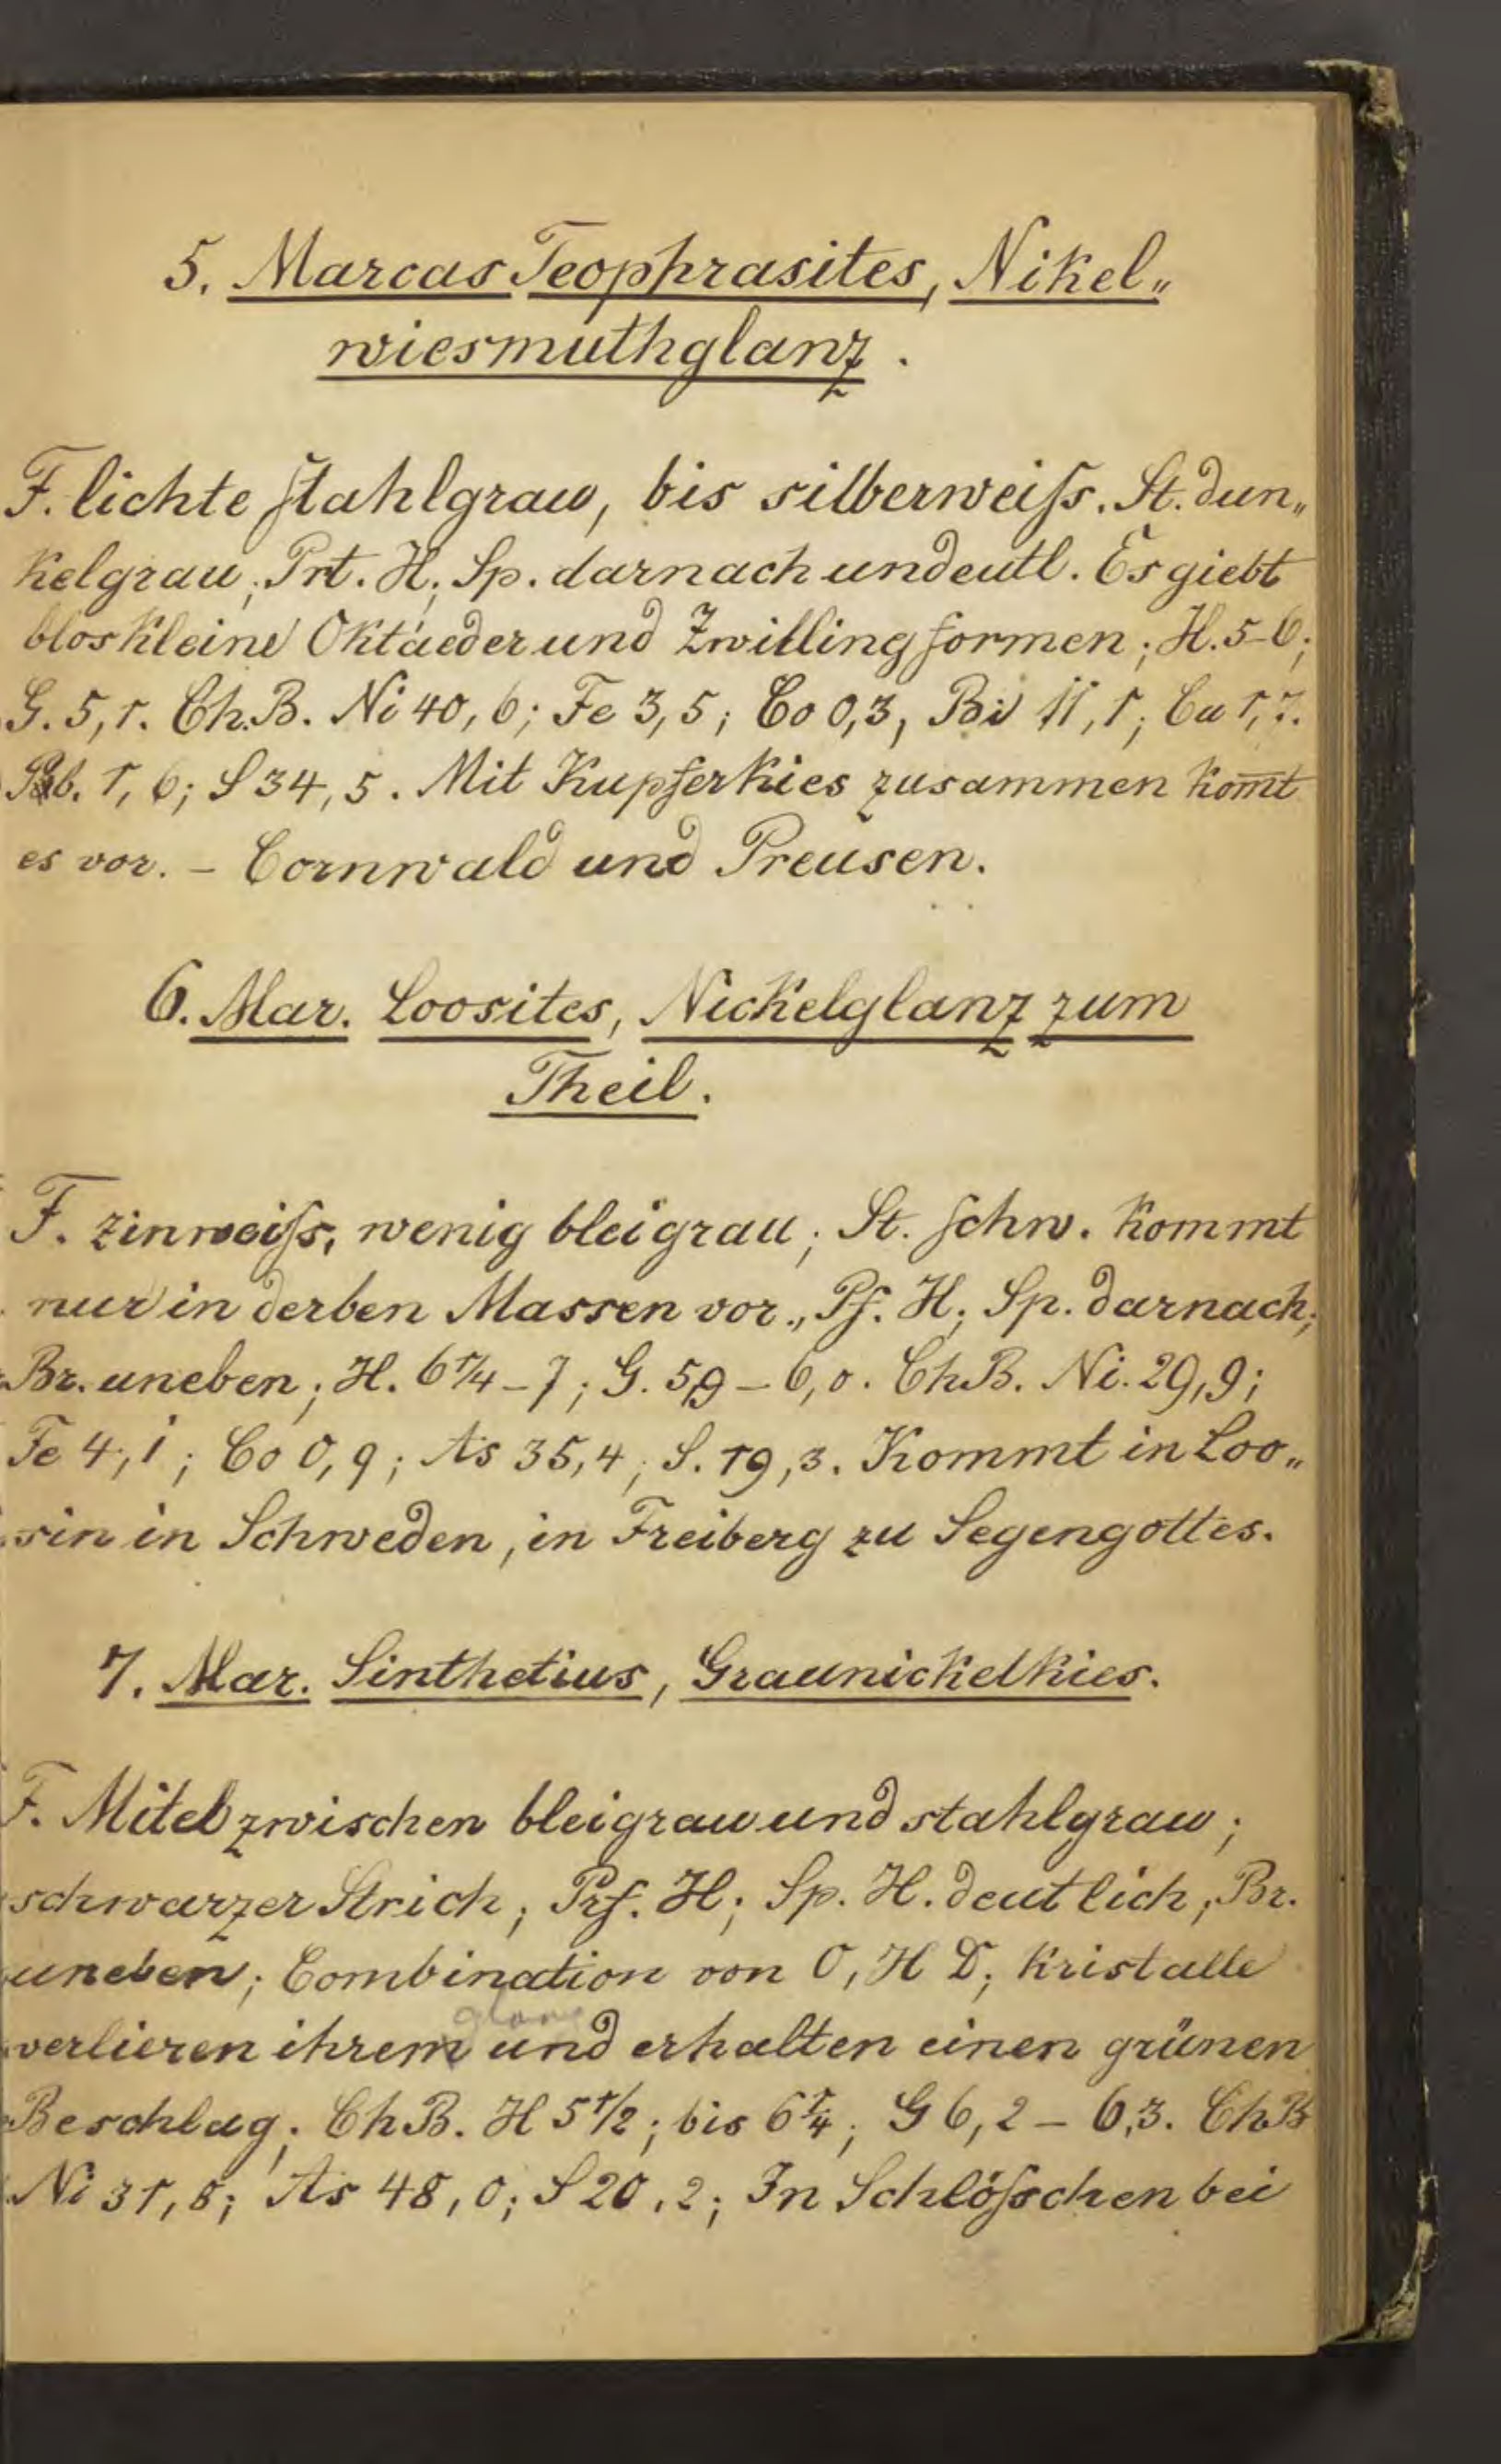 5. Marcas Teophrasites, Nikel„
wiesmuthglanz.
F. lichte stahlgrau, bis silberweiſs. St. dun„
kelgrau; Prt. H; Sp. darnach undeutl. Es giebt
blos kleine Oktaeder und Zwillingformen; H. 5-6;
G. 5,1. Ch.B. Ni 40,6; Fe 3,5; Co 0,3, Bi 11,1; Cu 1,7.
Pb. 1,6; S 34,5. Mit Kupferkies zusammen kom̄t
es vor. - Cornwald und Preusen.
6. Mar. Loosites, Nickelglanz zum
Theil.
F. zinweiſs, wenig bleigrau; St. schw. kommt
nur in derben Massen vor., Pf. H; Sp. darnach;
Br. uneben; H. 6 1/4 - 7; G. 5,9 - 6,0. Ch.B. Ni. 29,9;
Fe 4,1; Co 0,9; As 35,4; S. 19,3. Kommt in Loo„
sin in Schweden, in Freiberg zu Segengottes.
7. Mar. Sinthetius, Graunickelkies.
F. Mitel zwischen bleigrau und stahlgrau;
schwarzer Strich; Prf. H; Sp. H. deutlich; Br.
uneben; Combination von O, H D; Kristalle
glanz
verlieren ihrem und erhalten einen grünen
Beschlag; Ch B. H 5 1/2; bis 6 1/4; G 6,2 - 6,3. Ch B
Ni 31,8; As 48,0; S 20,2; In Schlöſschen bei